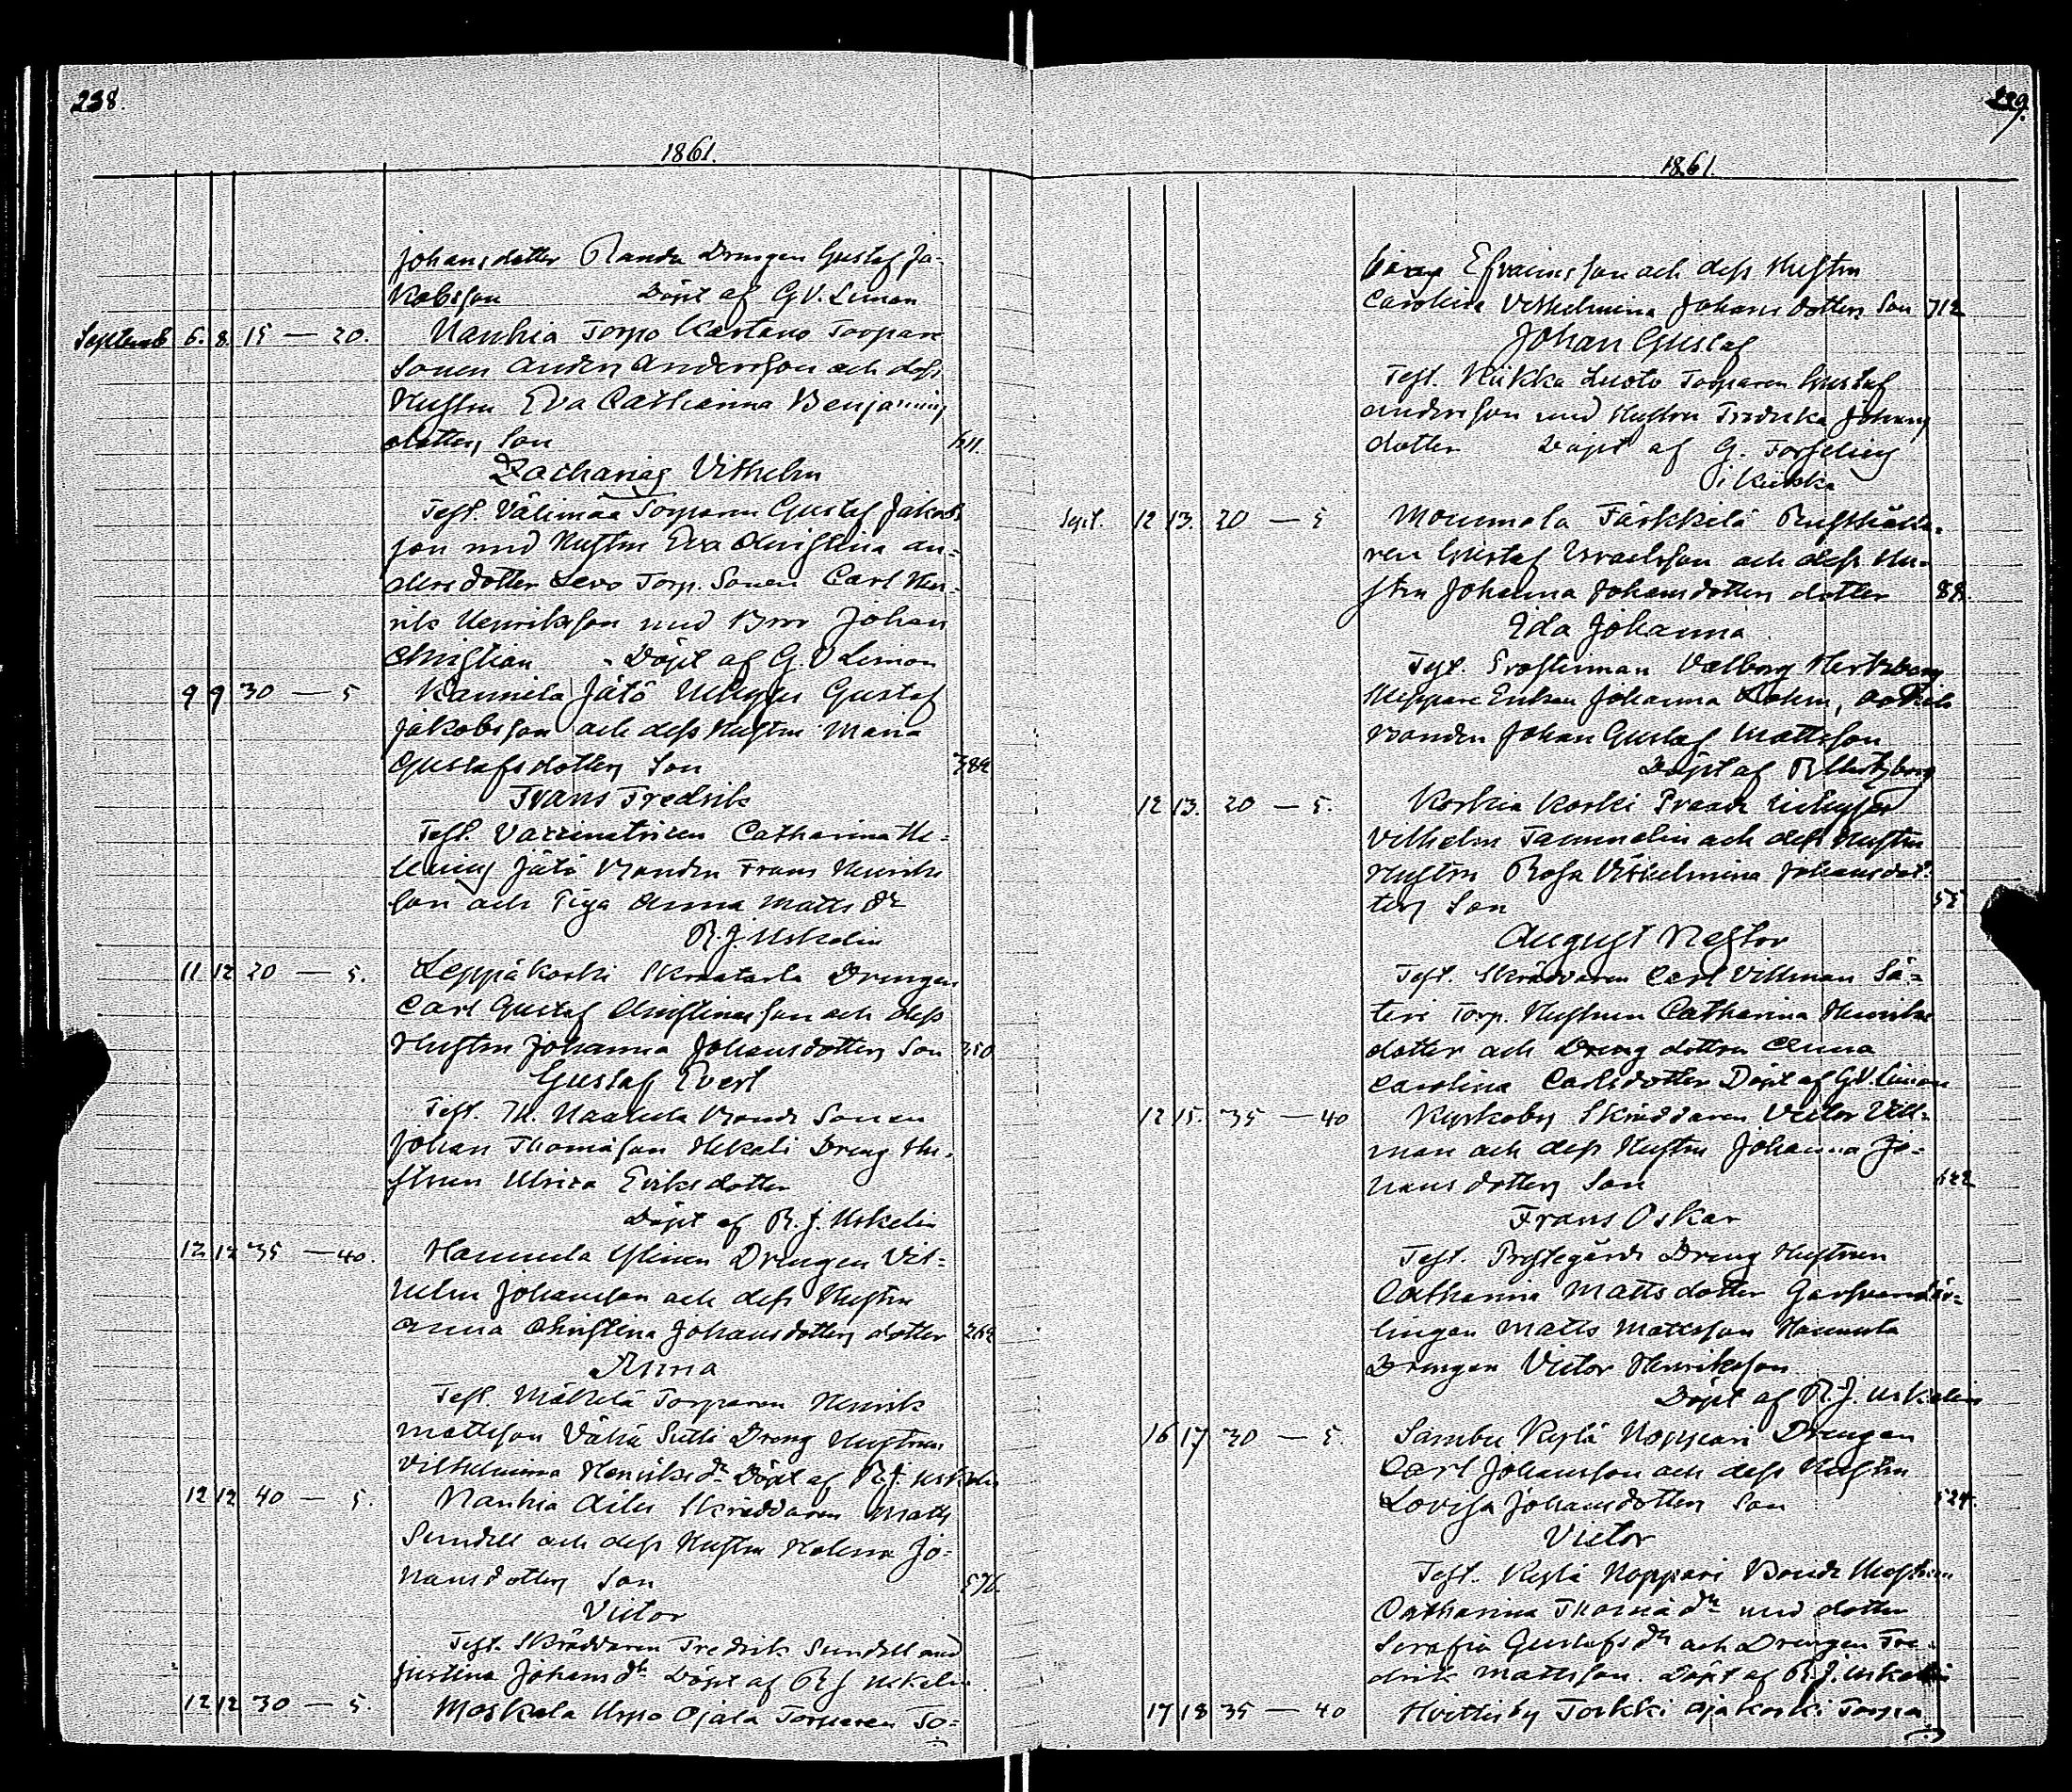 238.
1861.
Johansdotter Bonden Drengen Gustaf Ja-
kobsson Döpt af G.V. Liman
Septemb 6. 8. 15 — 20. Nanhia Torpo Kartano Torpare
Sonen Anders Andersson och dess
Hustru Eva Catharina Benjamins
dotters Son 611.
Zacharias Vilhelm
Test. Välimaa Torparen Gustaf Jakobs
son med Hustru Eva Christina An-
dersdotter Levo Torp. Sonen Carl Hen-
rik Henriksson med Bror Johan
Christian Döpt af G.V Liman
9 9 30 — 5 Kaunela Jätö Gustaf
Jakobsson och dess Hustru Maria
Gustafsdotters Son 384
Frans Fredrik
Test. Vaccinatricen Catharina He-
lenius Jätö Bonden Frans Henriks
son och Piga Anna Matts dr
R.J. Uskelin
11 12 20 — 5. Leppäkoski Skraatarla Drengen
Carl Gustaf Christiansson och dess
Hustru Johanna Johansdotters Son 350
Gustaf Evert
Test. Th. Naakela Bonde Sonen
Johan Thomasson Hekali Dreng Hu-
strun Ulrica Eriksdotter
Döpt af R.J. Uskelin
12 12 35 — 40. Hannula Drengen Vil-
helm Johansson och dess Hustru
Anna Christina Johansdotters dotter 262
Anna
Test. Mäkelä Torparen Henrik
Mattsson Vähä Sutti Dreng Hustrun
Vilhelmina Henriks dr Döpt af R.J. Uskelin
12 12 40 — 5. Nanhia Ailes Skräddaren Matts
Sundell och dess Hustru Helena Jo-
hansdotters Son 576.
Victor
Test. Skräddaren Fredrik Sundell och
Justina Johans dr Döpt af R J Uskelin
12 12 30 — 5. Moskala Uspo Ojala Torparen To-
239.
1861.
Efraimsson och dess Hustru
Carolina Vilhelmina Johansdotters Son 712
Johan Gustaf
Test. Kiikka Luoto Torparen Gustaf
Andersson med Hustru Fredrika Johans
dotter Döpt af G. Forseling
i Kiikka
Sept. 12 13. 20 — 5 Moumola Färkkilä Rusthålla-
ren Gustaf Israelsson och dess Hu-
stru Johanna Johansdotters dotter 88.
Ida Johanna
Test. Prostinnan Valborg Hertzberg
Johanna Bohm,
Bonden Johan Gustaf Mattsson
Döpt af R Hertzberg
12 13. 20 — 5. Koskia Koski
Vilhelm Tammelin och dess Hustru
Hustru Rosa Vilhelmina Johansdot-
ters Son 55
August Nestor
Test. Skräddaren Carl Villman Sä-
teri Torp. Hustrun Catharina Henriks
dotter och Dreng dottren Anna
Carolina Carlsdotter Döpt af G.V. Liman
12 15. 35 — 40 Kyrkoby Skräddaren Victor Vill-
man och dess Hustru Johanna Jo-
hansdotters Son 622
Frans Oskar
Test. Prestegårds Dreng Hustrun
Catharina Mattsdotter
lingen Matts Mattsson Hannula
Drengen Victor Henriksson
Döpt af R.J. Uskelin
16 17 30 — 5. Sambu Kylä Noppari Drengen
Carl Johansson och dess Hustru
Lovisa Johansdotters Son 524.
Victor
Test. Kylä Noppari Bonde Hustrun
Catharina Thomas dr med dotter
Serafia Gustafs dr och Drengen Fre-
drik Mattsson. Döpt af R.J. Uskelin
17 18 35 — 40 Hvittisby Torkki Ojakoski Torpa